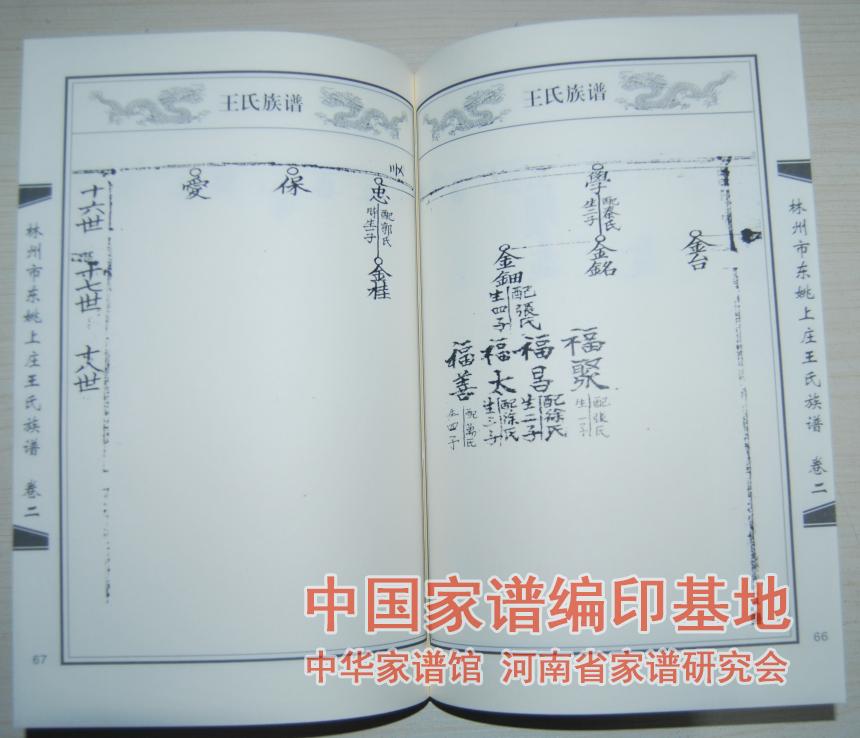 王氏族谱
林州市东姚上庄王氏族谱 卷二
66
金台
學
配秦氏
生二子
金銘
金鈿
配張氏
生四子
福聚
配张氏
生一子
福昌
配徐氏
生二子
福太
配涂氏
生三子
福善
生四子
王氏族谱
忠
配郭氏
生一子
金桂
保
愛
十六世
十七世
十八世
林州市东姚上庄王氏族谱 卷二
67
中国家谱编印基地
中华家谱馆 河南省家谱研究会